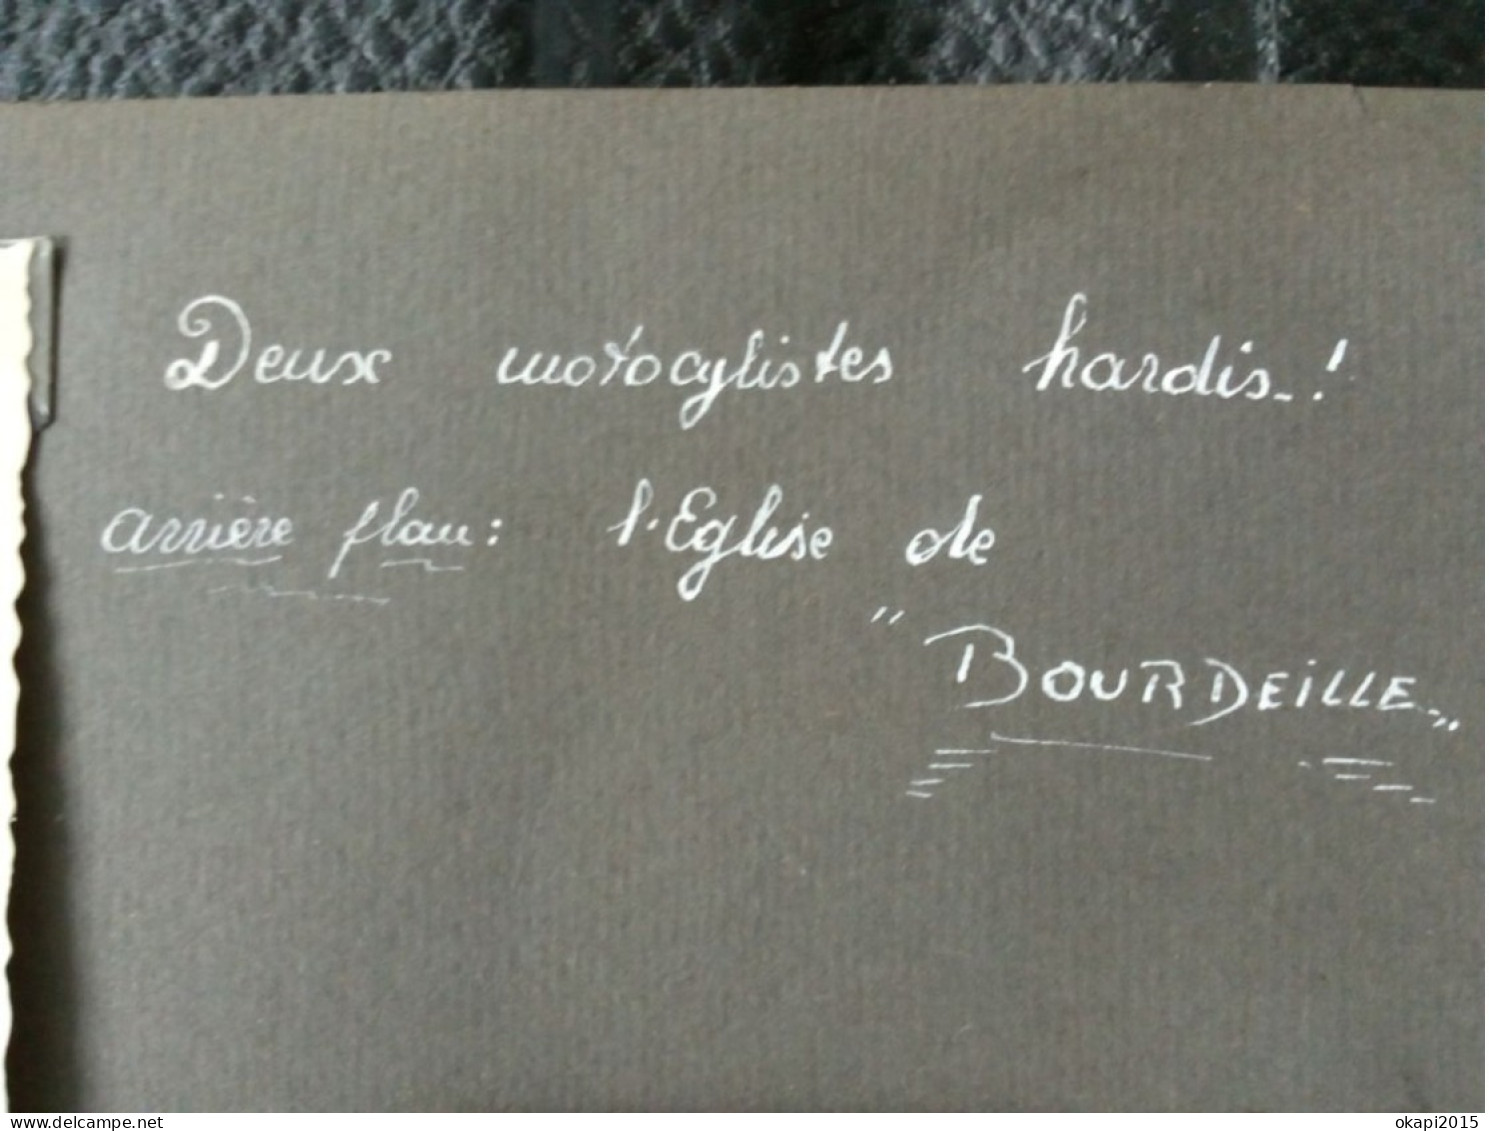 Deux motocylistes hardis..!
arrière plan: l'Eglise de
"BOURDEILLE..„
www.delcampe.net
okapi2015